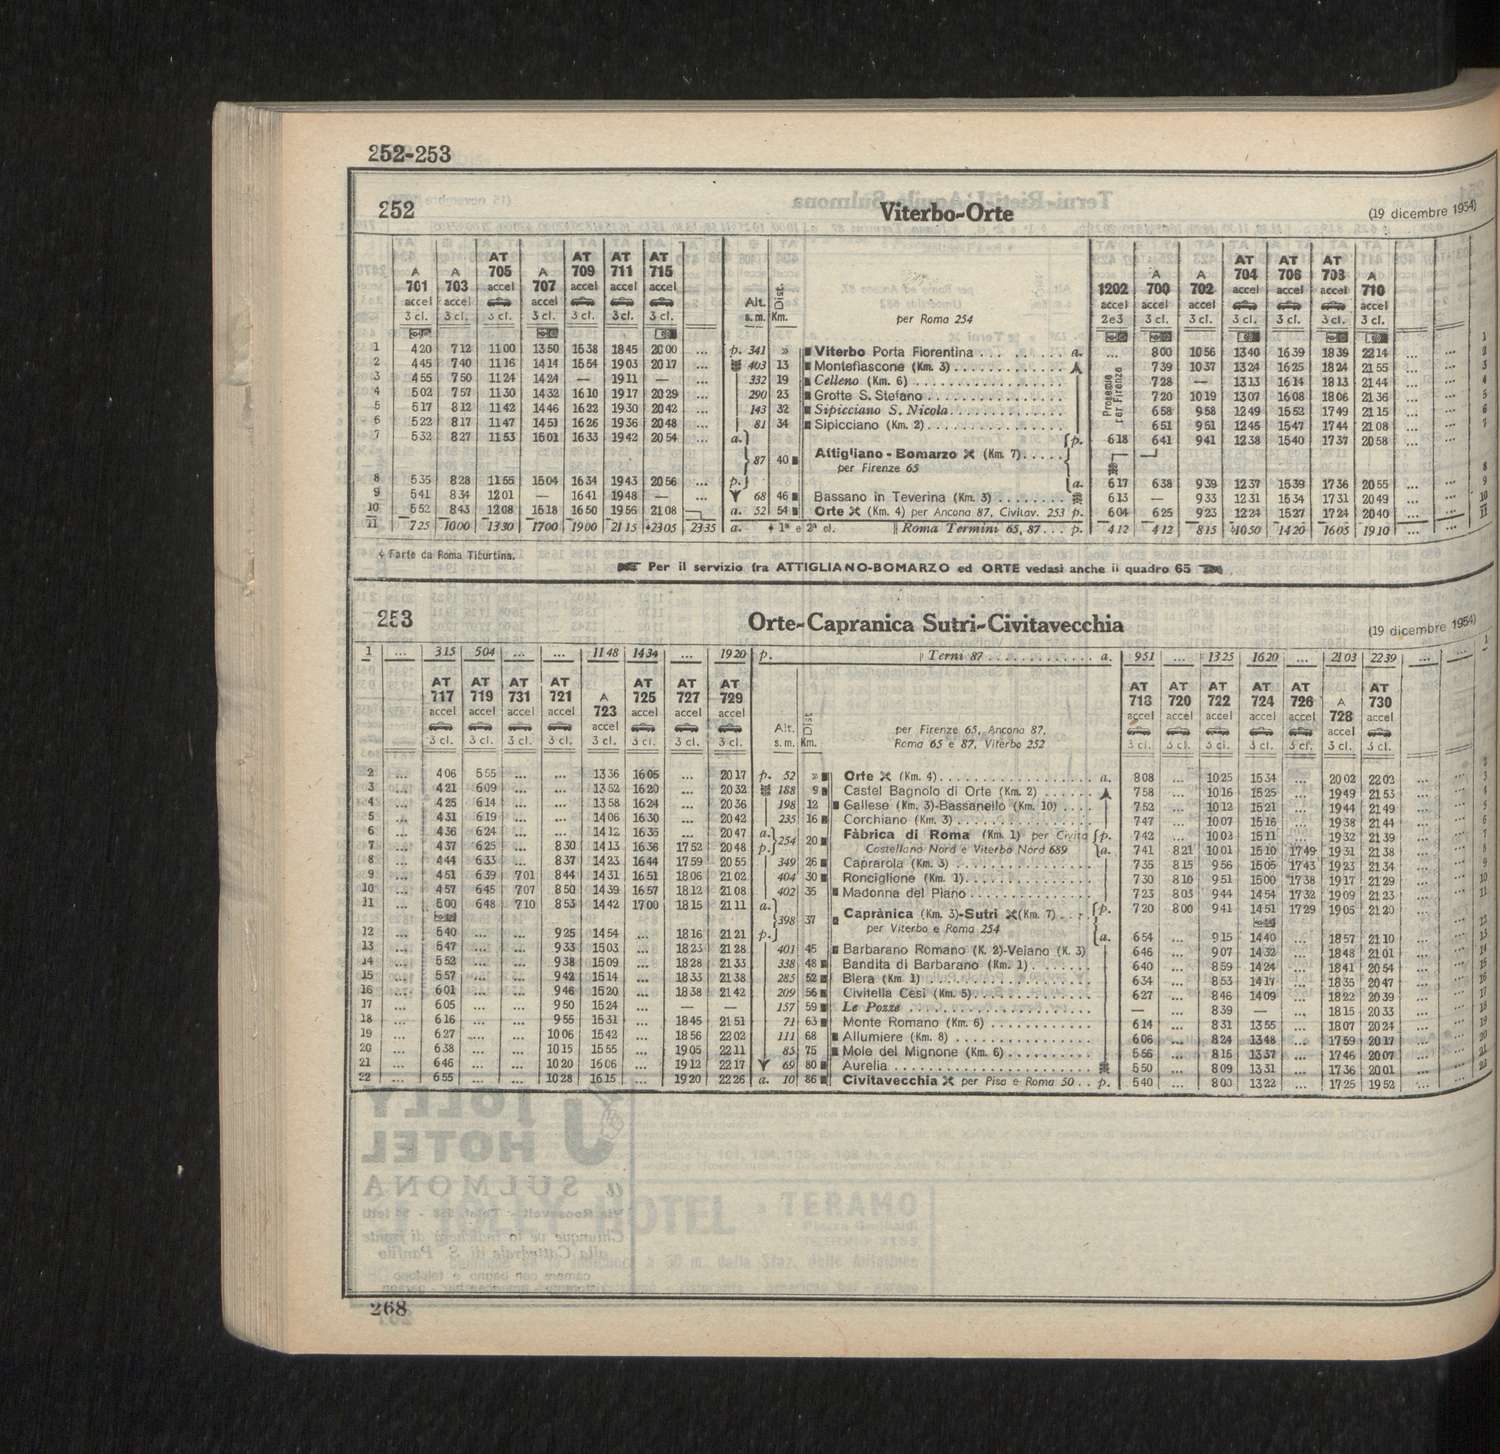 252-253
252 Viterbo-Orte (19 dicembre 1954)
A 701 accel 3 cl. A 703 accel 3 cl. AT 705 accel 3 cl. A 707 accel 3 cl. AT 709 accel 3 cl. AT 711 accel 3 cl. AT 715 accel 3 cl. Alt. s. m. Dist. Km. per Roma 254 1202 accel 2e3 A 700 accel 3 cl. A 702 accel 3 cl. AT 704 accel 3 cl. AT 706 accel 3 cl. AT 708 accel 3 cl. A 710 accel 3 cl.
1 4 20 7 12 11 00 13 50 15 38 18 45 20 00 ... p. 341 » Viterbo Porta Fiorentina . . . a. ... 8 00 10 56 13 40 16 39 18 39 22 14 ...
2 4 45 7 40 11 16 14 14 15 54 19 03 20 17 ... 403 13 Montefiascone (Km. 3) 7 39 10 37 13 24 16 25 18 24 21 55 ...
3 4 55 7 50 11 24 14 24 — 19 11 — ... 332 19 Celleno (Km. 6) 7 28 — 13 13 16 14 18 13 21 44 ...
4 5 02 7 57 11 30 14 32 16 10 19 17 20 29 ... 290 23 Grotte S. Stefano 7 20 10 19 13 07 16 08 18 06 21 36 ...
5 5 17 8 12 11 42 14 46 16 22 19 30 20 42 ... 143 32 Sipicciano S. Nicola 6 58 9 58 12 49 15 52 17 49 21 15 ...
6 5 22 8 17 11 47 14 51 16 26 19 36 20 48 ... 81 34 Sipicciano (Km. 2) 6 51 9 51 12 45 15 47 17 44 21 08 ...
7 5 32 8 27 11 53 15 01 16 33 19 42 20 54 ... a. p. 6 18 6 41 9 41 12 38 15 40 17 37 20 58 ...
Prosegue per Firenze
87 40 Attigliano - Bomarzo (Km. 7)
per Firenze 65
8 5 35 8 28 11 55 15 04 16 34 19 43 20 56 ... p. a. 6 17 6 38 9 39 12 37 15 39 17 36 20 55 ...
9 5 41 8 34 12 01 — 16 41 19 48 — ... 68 46 Bassano in Teverina (Km. 3) 6 13 — 9 33 12 31 15 34 17 31 20 49 ...
10 5 52 8 43 12 08 15 18 16 50 19 56 21 08 a. 52 54 Orte (Km. 4) per Ancona 87, Civitav. 253 p. 6 04 6 25 9 23 12 24 15 27 17 24 20 40 ...
11 7 25 10 00 13 30 17 00 19 00 21 15 23 05 23 35 a. 1ª e 2ª cl. Roma Termini 65, 87 . . . p. 4 12 4 12 8 15 10 50 14 20 16 05 19 10 ...
Parte da Roma Tiburtina.
Per il servizio fra ATTIGLIANO-BOMARZO ed ORTE vedasi anche il quadro 65
253 Orte-Capranica Sutri-Civitavecchia (19 dicembre 1954)
1 ... 3 15 5 04 ... ... 11 48 14 34 ... 19 20 p. Terni 87 a. 9 51 ... 13 25 16 20 ... 21 03 22 39 ...
AT 717 accel 3 cl. AT 719 accel 3 cl. AT 731 accel 3 cl. AT 721 accel 3 cl. A 723 accel 3 cl. AT 725 accel 3 cl. AT 727 accel 3 cl. AT 729 accel 3 cl. Alt. s. m. Dist Km. per Firenze 65, Ancona 87, Roma 65 e 87, Viterbo 252 AT 718 accel 3 cl. AT 720 accel 3 cl. AT 722 accel 3 cl. AT 724 accel 3 cl. AT 726 accel 3 cl. A 728 accel 3 cl. AT 730 accel 3 cl.
2 ... 4 06 5 55 ... ... 13 36 16 05 ... 20 17 p. 52 » Orte (Km. 4) a. 8 08 ... 10 25 15 34 ... 20 02 22 03 ...
3 ... 4 21 6 09 ... ... 13 52 16 20 ... 20 32 188 9 Castel Bagnolo di Orte (Km. 2) 7 58 ... 10 16 15 25 ... 19 49 21 53 ...
4 ... 4 25 6 14 ... ... 13 58 16 24 ... 20 36 198 12 Gallese (Km. 3)-Bassanello (Km. 10) 7 52 ... 10 12 15 21 ... 19 44 21 49 ...
5 ... 4 31 6 19 ... ... 14 06 16 30 ... 20 42 235 16 Corchiano (Km. 3) 7 47 ... 10 07 15 16 ... 19 38 21 44 ...
6 ... 4 36 6 24 ... ... 14 12 16 35 ... 20 47 a. 254 20 Fàbrica di Roma (Km. 1) per Civita p. 7 42 ... 10 03 15 11 ... 19 32 21 39 ...
7 ... 4 37 6 25 ... 8 30 14 13 16 36 17 52 20 48 p. Castellana Nord e Viterbo Nord 689 a. 7 41 8 21 10 01 15 10 17 49 19 31 21 38 ...
8 ... 4 44 6 33 ... 8 37 14 23 16 44 17 59 20 55 349 26 Caprarola (Km. 3) 7 35 8 15 9 56 15 05 17 43 19 23 21 34 ...
9 ... 4 51 6 39 7 01 8 44 14 31 16 51 18 06 21 02 404 30 Ronciglione (Km. 1) 7 30 8 10 9 51 15 00 17 38 19 17 21 29 ...
10 ... 4 57 6 45 7 07 8 50 14 39 16 57 18 12 21 08 402 35 Madonna del Piano 7 23 8 03 9 44 14 54 17 32 19 09 21 23 ...
11 ... 5 00 6 48 7 10 8 53 14 42 17 00 18 15 21 11 a. 398 37 Caprànica (Km. 3)-Sutri (Km. 7) p. 7 20 8 00 9 41 14 51 17 29 19 05 21 20 ...
per Viterbo e Roma 254
12 ... 5 40 ... ... 9 25 14 54 ... 18 16 21 21 p. a. 6 54 ... 9 15 14 40 ... 18 57 21 10 ...
13 ... 5 47 ... ... 9 33 15 03 ... 18 23 21 28 401 45 Barbarano Romano (K. 2)-Veiano (K. 3) 6 46 ... 9 07 14 32 ... 18 48 21 01 ...
14 ... 5 52 ... ... 9 38 15 09 ... 18 28 21 33 338 48 Bandita di Barbarano (Km. 1) 6 40 ... 8 59 14 24 ... 18 41 20 54 ...
15 ... 5 57 ... ... 9 42 15 14 ... 18 33 21 38 285 52 Blera (Km. 3) 6 34 ... 8 53 14 17 ... 18 35 20 47 ...
16 ... 6 01 ... ... 9 46 15 20 ... 18 38 21 42 209 56 Civitella Cesi (Km. 5) 6 27 ... 8 46 14 09 ... 18 22 20 39 ...
17 ... 6 05 ... ... 9 50 15 24 ... — — 157 59 Le Pozze — ... 8 39 — ... 18 15 20 33 ...
18 ... 6 16 ... ... 9 55 15 31 ... 18 45 21 51 71 63 Monte Romano (Km. 6) 6 14 ... 8 31 13 55 ... 18 07 20 24 ...
19 ... 6 27 ... ... 10 06 15 42 ... 18 56 22 02 111 68 Allumiere (Km. 8) 6 06 ... 8 24 13 48 ... 17 59 20 17 ...
20 ... 6 38 ... ... 10 15 15 55 ... 19 05 22 11 85 75 Mole del Mignone (Km. 6) 5 56 ... 8 15 13 37 ... 17 46 20 07 ...
21 ... 6 46 ... ... 10 20 16 06 ... 19 12 22 17 69 80 Aurelia 5 50 ... 8 09 13 31 ... 17 36 20 01 ...
22 ... 6 55 ... ... 10 28 16 15 ... 19 20 22 26 a. 10 86 Civitavecchia per Pisa e Roma 50 . . p. 5 40 ... 8 00 13 22 ... 17 25 19 52 ...
268